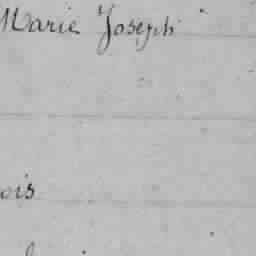 Marie Joseph
ois